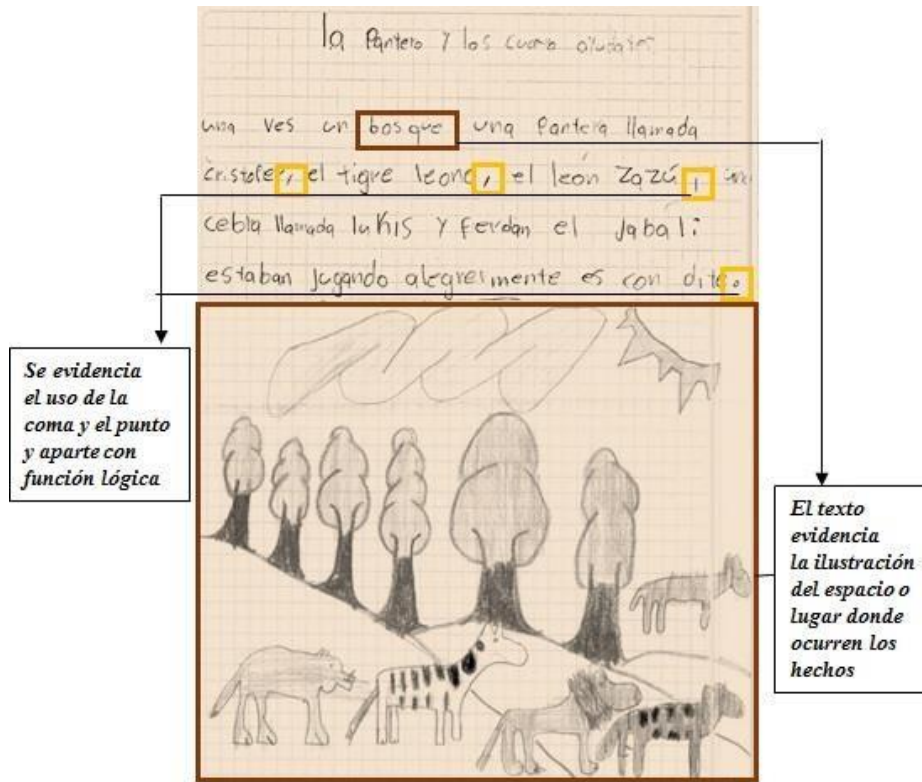 la Pantera y los cuatro
una ves un bosque una Pantera llamada
cristofer, el tigre leono, el león Zazú, una
cebla llamada luKis y ferdan el jabali
estaban jugando alegremente es con dite.
Se evidencia
el uso de la
coma y el punto
y aparte con
función lógica
El texto
evidencia
la ilustración
del espacio o
lugar donde
ocurren los
hechos